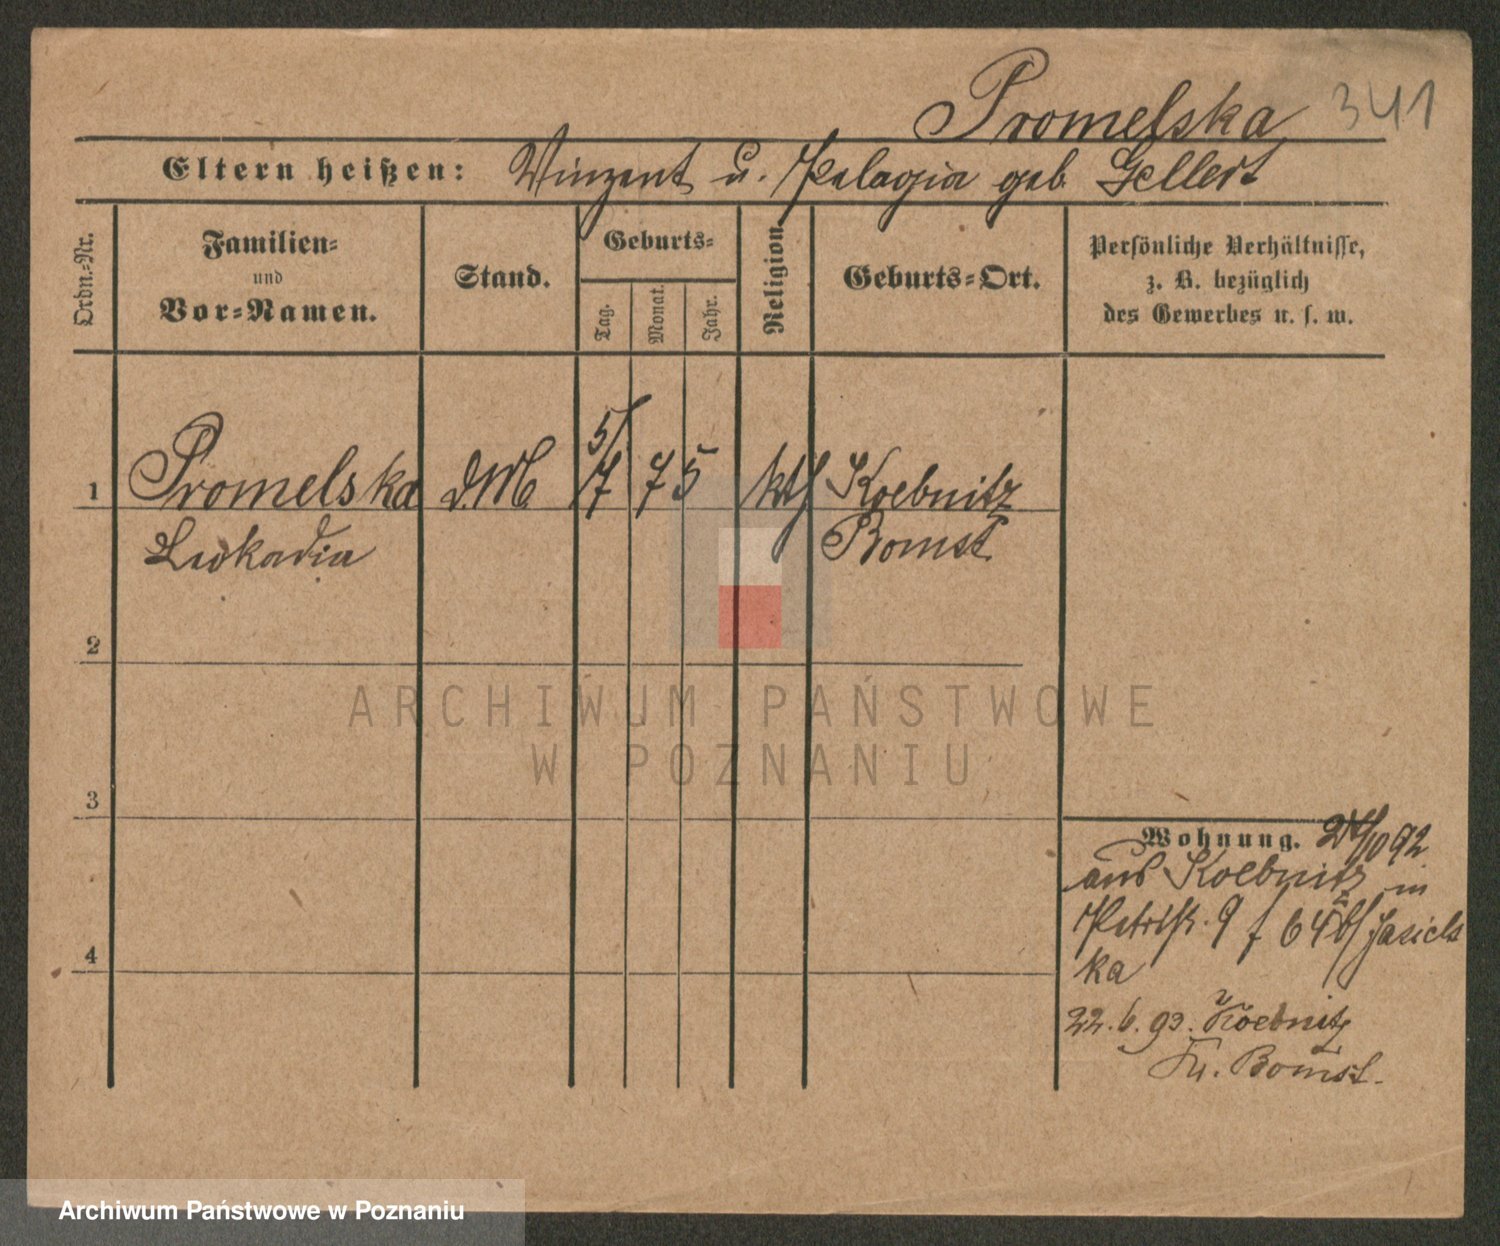 Promelska 341
Eltern heißen: Winzent u. Pelagia geb. Gellert
Ordn.-Nr.
Familien-
und
Vor-Namen.
Stand.
Geburts-
Tag.
Monat.
Jahr.
Religion.
Geburts-Ort.
Persönliche Verhältnisse,
z. B. bezüglich
des Gewerbes u. s. w.
1 Promelska d.M. 5/7 75 kth Koebnitz
Leokadia Bomst
2
3
4
Wohnung. 24/10 92
aus Koebnitz in
Petristr. 9 f 64 b/ Jasiels
ka
22. 6. 93. Koebnitz
Kr. Bomst.
ARCHIWUM PAŃSTWOWE
W POZNANIU
Archiwum Państwowe w Poznaniu